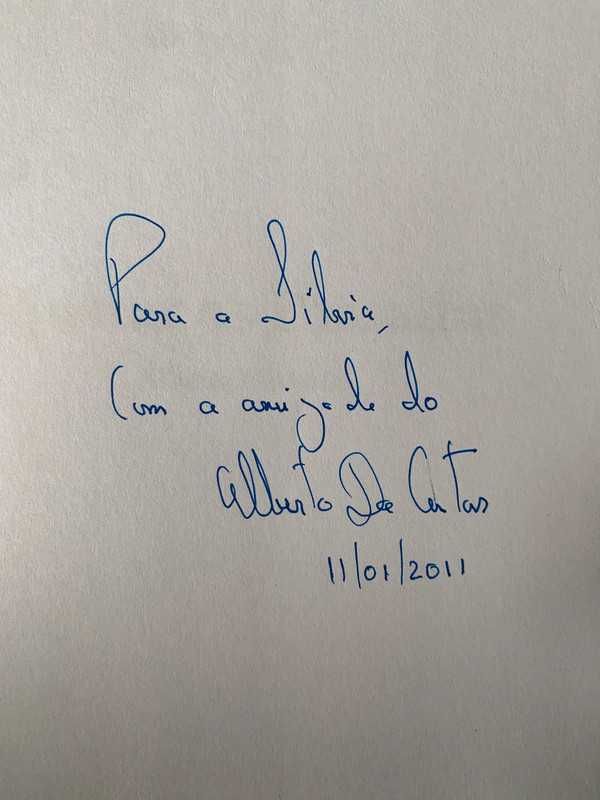 Para a Silvia,
Com a amizade do
Alberto Da
11/01/2011